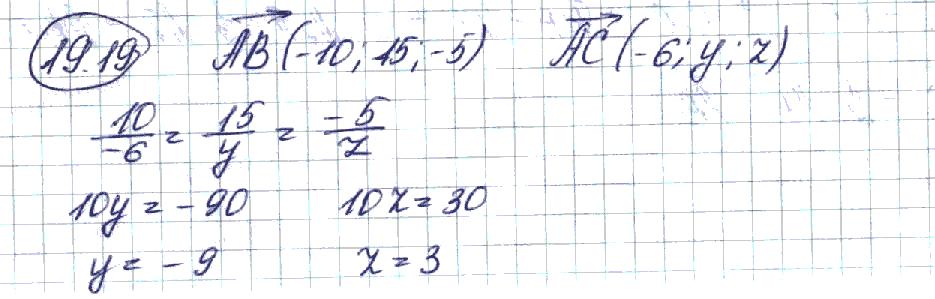 19.19 \overrightarrow{AB} (-10; 15; -5) \overrightarrow{AC} (-6; y; z)
\frac{10}{-6} = \frac{15}{y} = \frac{-5}{z}
10y = -90 10z = 30
y = -9 z = 3